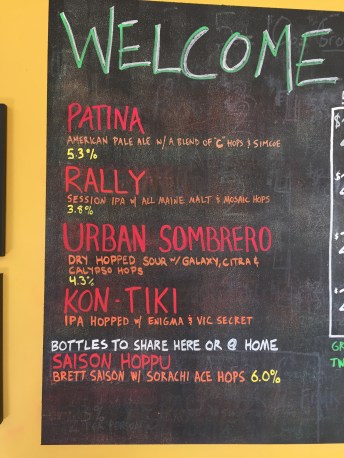 WELCOME
PATINA
AMERICAN PALE ALE W/ A BLEND OF "C" HOPS & SIMCOE
5.3%
RALLY
SESSION IPA W/ ALL MAINE MALT & MOSAIC HOPS
3.8%
URBAN SOMBRERO
DRY HOPPED SOUR W/ GALAXY, CITRA &
CALYPSO HOPS
4.3%
KON-TIKI
IPA HOPPED W/ ENIGMA & VIC SECRET
BOTTLES TO SHARE HERE OR @ HOME
SAISON HOPPU
BRETT SAISON W/ SORACHI ACE HOPS 6.0%